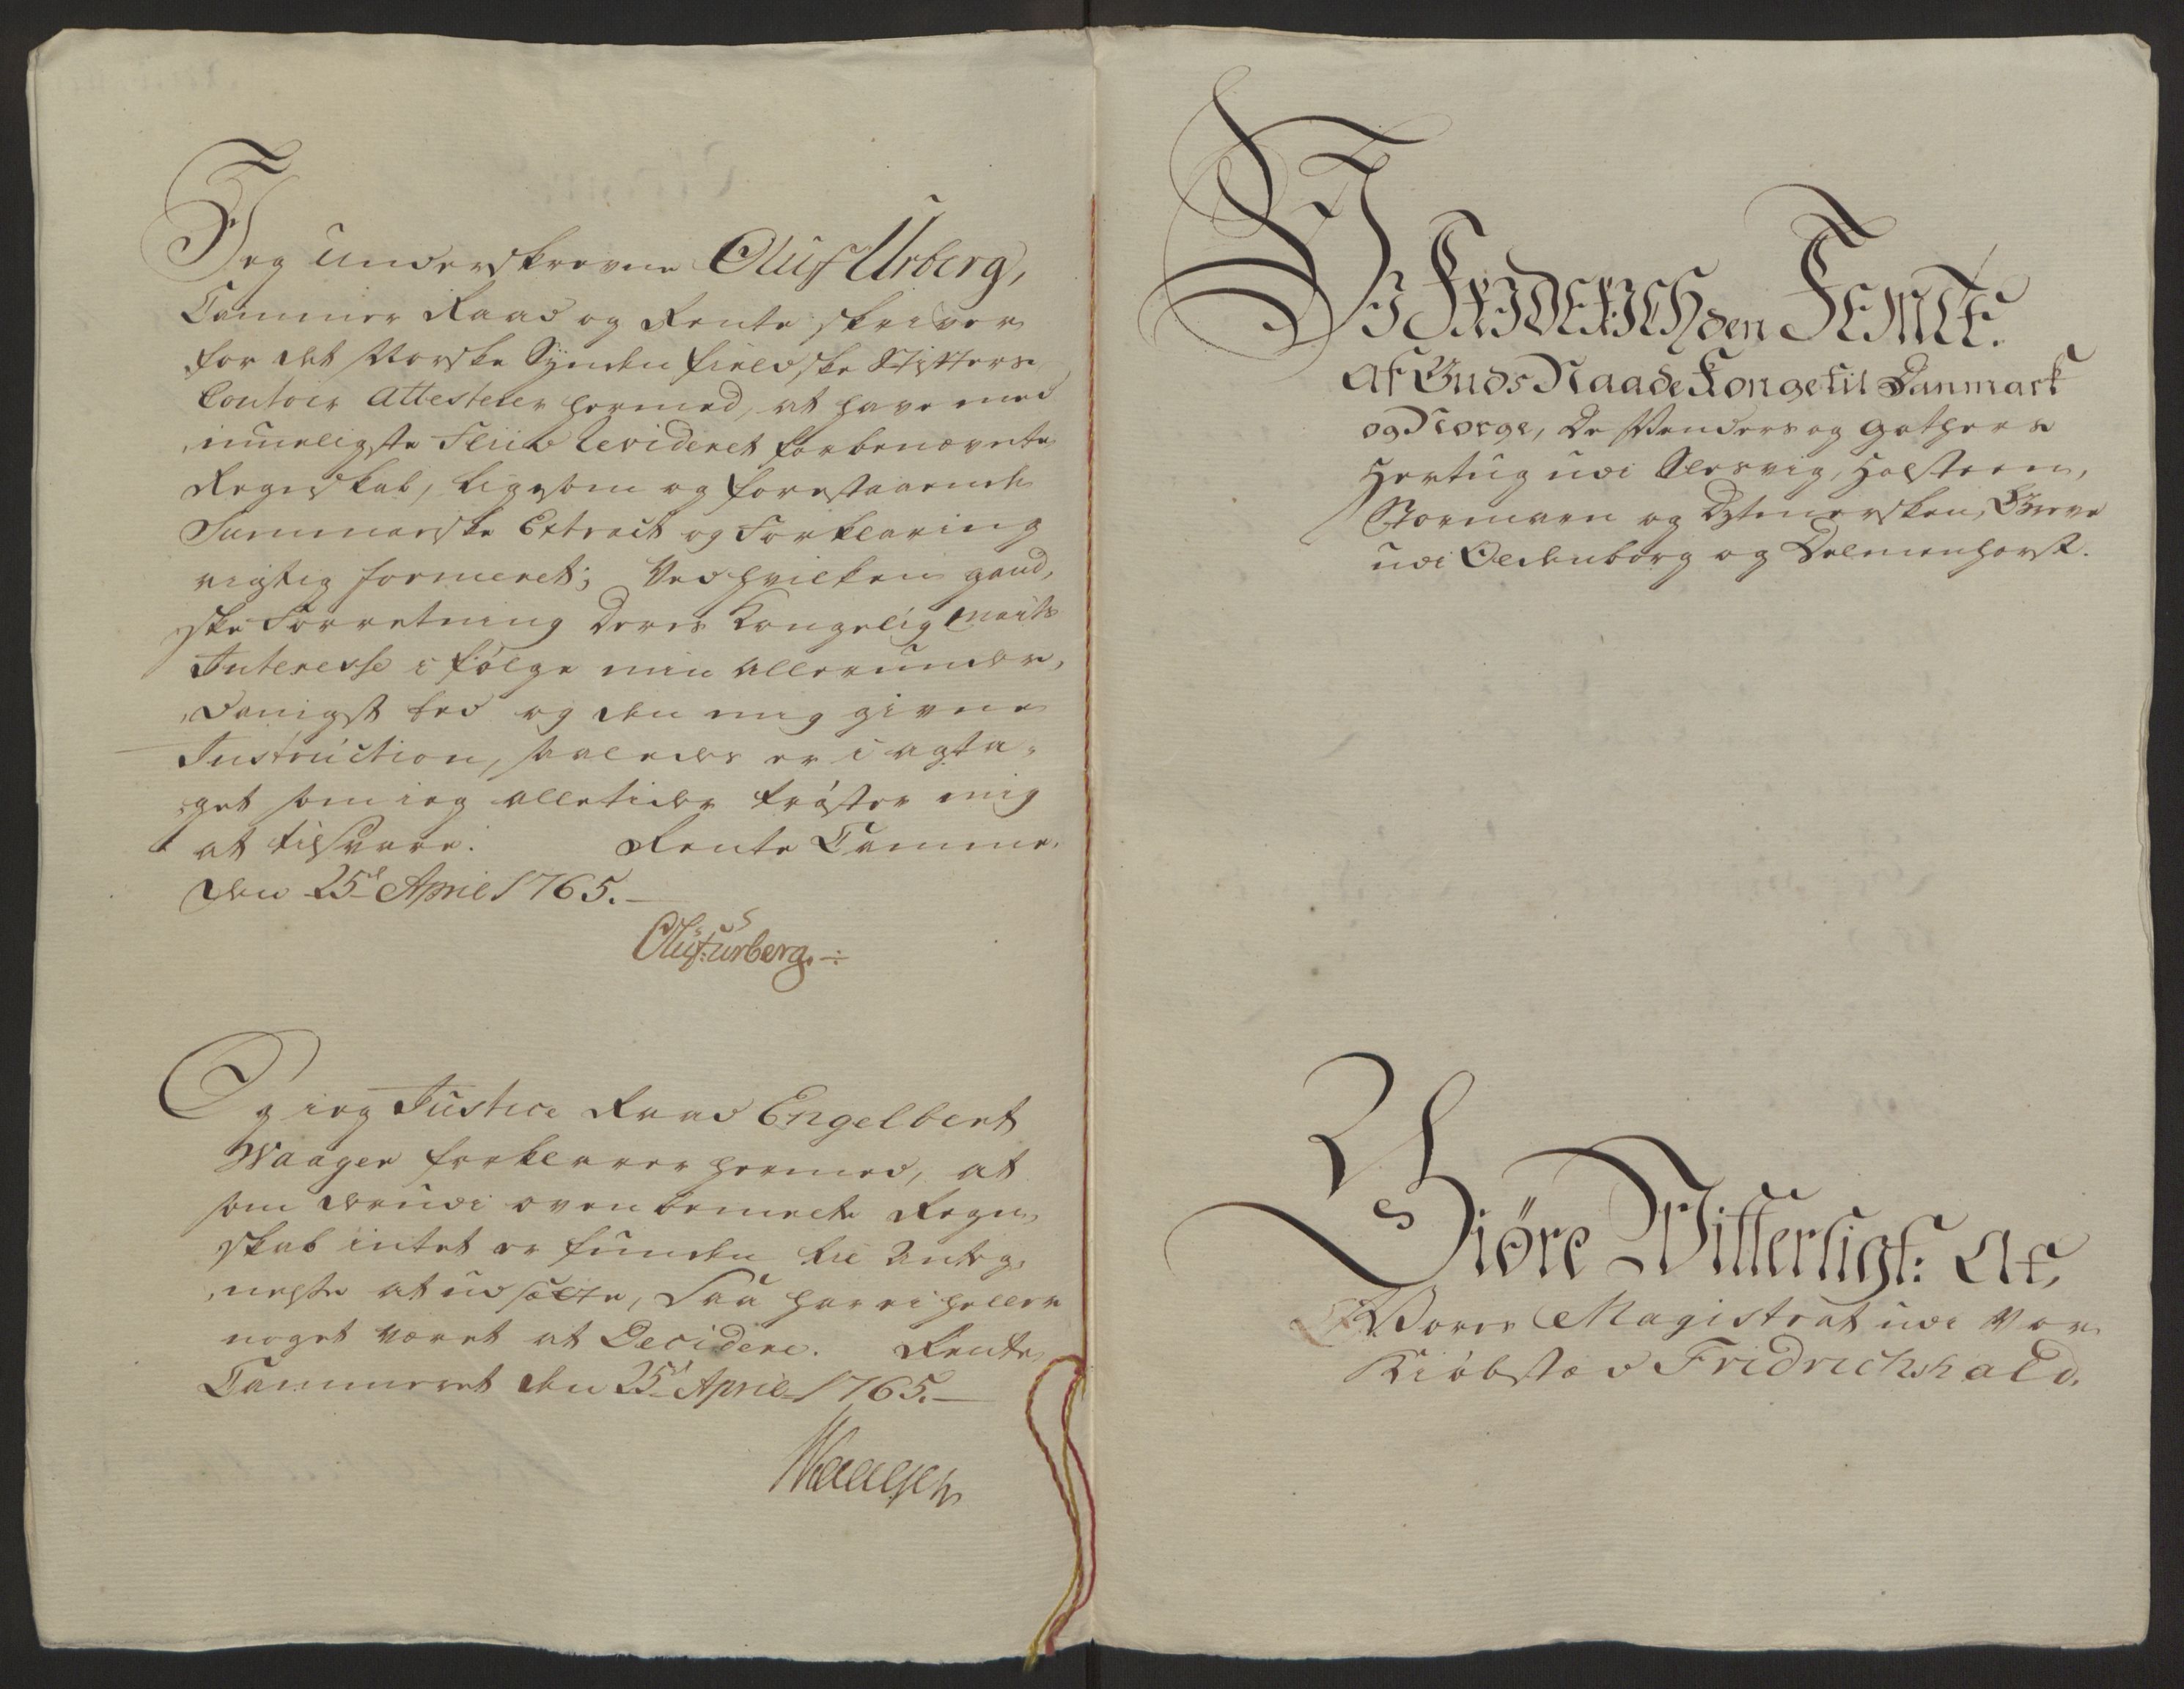 Jeg underskrevne Oluf Urberg,
Cammer Raad og Rente skriver
for det Norske Synden fieldske Stifters
Contoir Attesterer hermed, at have med
mueligste Fliid Revideret forbenævnte
Regnskab, ligesom og forestaaende
Summariske Extract og Forklaring
rigtig formeret; Ved hvilken gand,
ske Forretning Deres Kongelig Maits
Interesse i følge min allerunder,
danigst Eed og den mig givne
Instruction, saaledes er i agta,
get som jeg alletider trøster mig
at tilsvare. Rente Camme,
den 25d April 1765.
Oluf Urberg.
Og jeg Justice Raad Engelbert
Waagen forklarer hermed, at
som derudi ovenbemelte Regn,
skab intet er funden til Anteg,
nelse at udsætte, Saa har ei heller
noget været at Decidere. Rente
Cammeret den 25d April 1765.
Waagen
Vi FRIDERICH den FEMTE.
Af Guds Naade Konge til Danmark
og Norge, De Venders og Gothers
Hertug udi Slesvig, Holsteen,
Stormarn og Dytmersken, Greve
udi Oldenborg og Delmenhorst.
Giöre Vitterligt: At,
Vores Magistrat udi Vor
Kiøbstæd Fridrichshald.